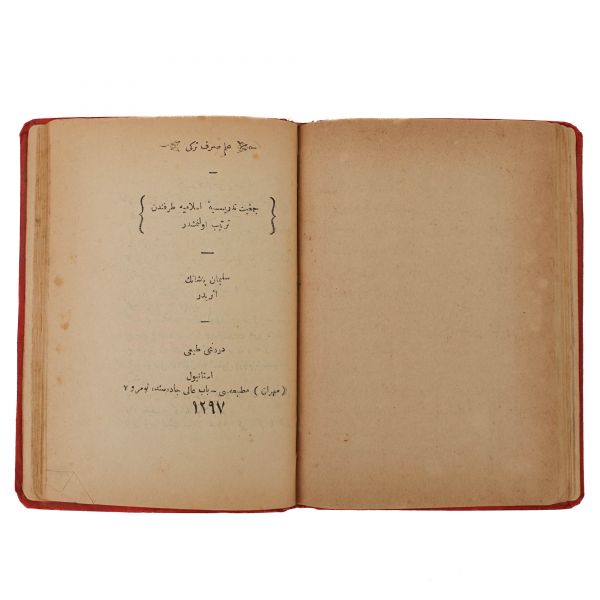 علم صرف تركی
جمعیت تدریسیهٔ اسلامیه طرفندن
ترتیب اولنمشدر
سلیمان پاشانك
اثریدر
دردنجی طبعی
استانبول
(مهران) مطبعه‌سی – باب عالی جاده‌سنده نومرو ۷
۱۲۹۷